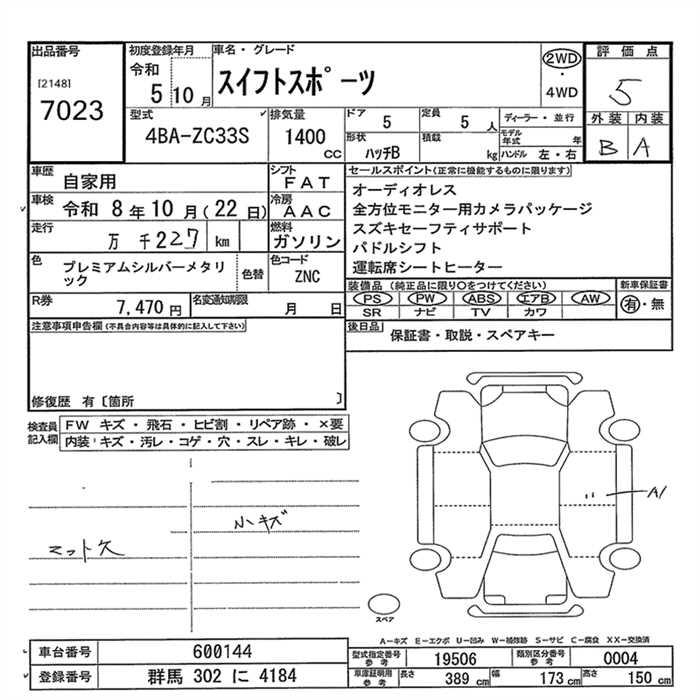 出品番号
[2148]
7023
初度登録年月
令和
5 10 月
車名・グレード
スイフトスポーツ
2WD
・
4WD
評価点
5
外装 内装
B A
型式
4BA-ZC33S
排気量
1400
CC
ドア
5
定員
5 人
形状
ハッチB
積載
kg
ディーラー・並行
モデル年式
年
ハンドル 左・右
車歴
自家用
シフト
FAT
車検
令和 8 年 10 月 ( 22 日)
冷房
AAC
走行
万 千 227 km
燃料
ガソリン
色
プレミアムシルバーメタリック
色替
色コード
ZNC
R券
7,470 円
名変通知期限
月 日
セールスポイント (正常に機能するものに限ります)
オーディオレス
全方位モニター用カメラパッケージ
スズキセーフティサポート
パドルシフト
運転席シートヒーター
装備品 (純正品に限り○をつけてください)
PS PW ABS エアB AW
SR ナビ TV カワ
新車保証書
有・無
後日品
保証書・取説・スペアキー
注意事項申告欄 (不具合内容等は具体的に記入して下さい)
修復歴 有 〔箇所 〕
検査員記入欄
FW キズ・飛石・ヒビ割・リペア跡・×要
内装 キズ・汚レ・コゲ・穴・スレ・キレ・破レ
小キズ
マット欠
A1
スペア
A-キズ E-エクボ U-凹み W-補修跡 S-サビ C-腐食 XX-交換済
車台番号
600144
登録番号
群馬 302 に 4184
型式指定番号
参考
19506
類別区分番号
参考
0004
車庫証明用
参考
長さ
389 cm
幅
173 cm
高さ
150 cm